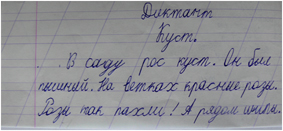 Диктант
Куст.
В саду рос куст. Он был
пышний. На ветках красные розы.
Розы так пахли! А рядом шипы.